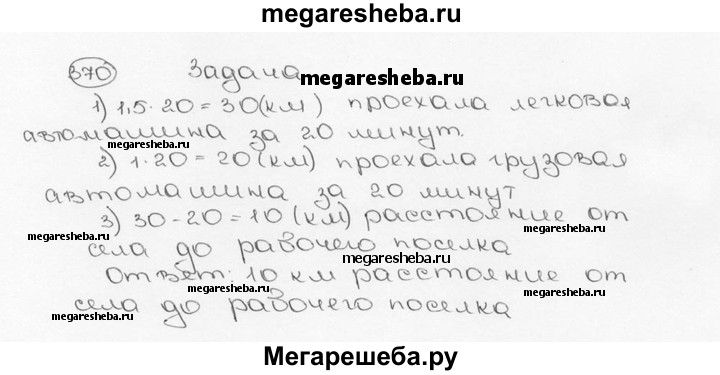 megaresheba.ru
370 Задача
megaresheba.ru
1) 1,5 · 20 = 30 (км) проехала легковая
автомашина за 20 минут.
megaresheba.ru
2) 1 · 20 = 20 (км) проехала грузовая
megaresheba.ru
автомашина за 20 минут
3) 30 - 20 = 10 (км) расстояние от
megaresheba.ru
megaresheba.ru
села до рабочего поселка
megaresheba.ru
Ответ: 10 км расстояние от
megaresheba.ru
села до рабочего поселка
megaresheba.ru
megaresheba.ru
Мегарешеба.ру